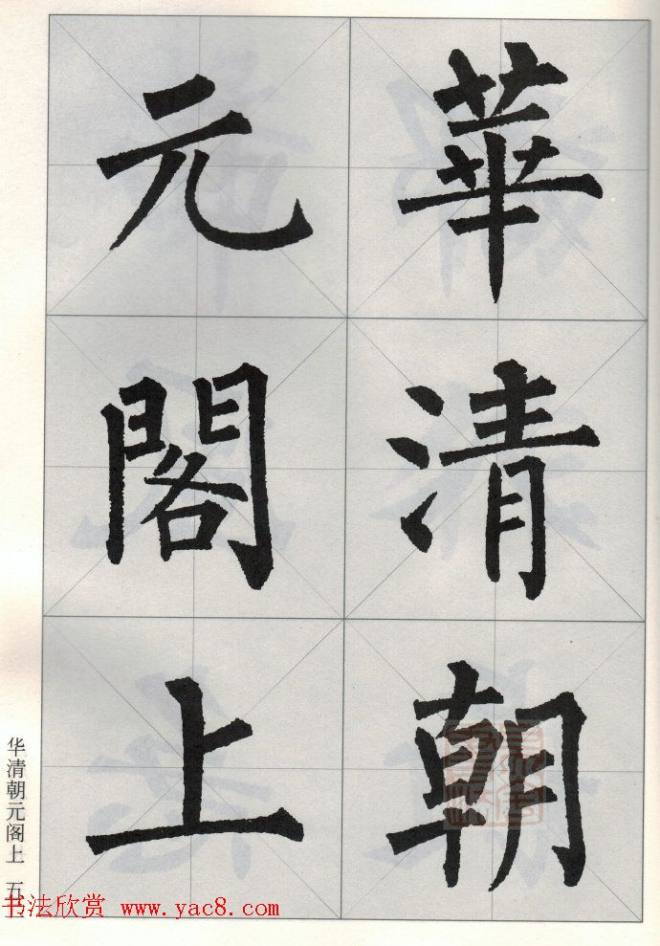 華清朝
元閣上
华清朝元阁上 五
书法欣赏 www.yac8.com